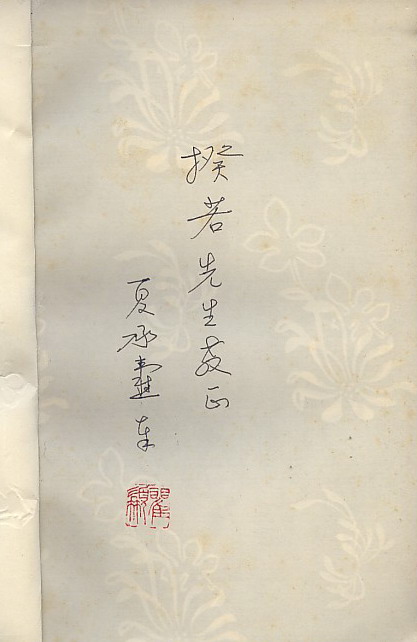 揆若先生教正
夏承焘奉